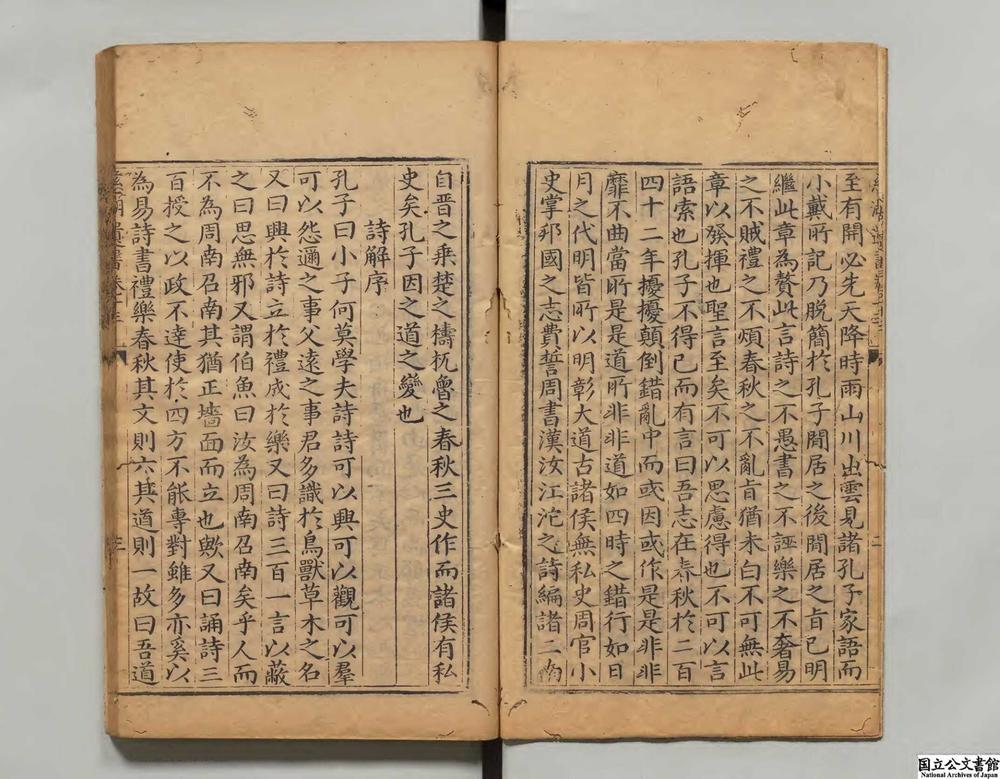 至有開必先天降時雨山川出雲見諸孔子家語而
小戴所記乃脫簡於孔子閒居之後閒居之旨已明
繼此章為贅此言詩之不愚書之不誣樂之不奢易
之不賊禮之不煩春秋之不亂旨猶未白不可無此
章以發揮也聖言至矣不可以思慮得也不可以言
語索也孔子不得已而有言曰吾志在春秋於二百
四十二年擾擾顛倒錯亂中而或因或作是是非非
靡不曲當所是是道所非非道如四時之錯行如日
月之代明皆所以明彰大道古諸侯無私史周官小
史掌邦國之志費誓周書漢汝江沱之詩編諸二南
自晋之乘楚之檮杌魯之春秋三史作而諸侯有私
史矣孔子因之道之變也
詩解序
孔子曰小子何莫學夫詩詩可以興可以觀可以羣
可以怨邇之事父遠之事君多識於鳥獸草木之名
又曰興於詩立於禮成於樂又曰詩三百一言以蔽
之曰思無邪又謂伯魚曰汝為周南召南矣乎人而
不為周南召南其猶正墻面而立也歟又曰誦詩三
百授之以政不達使於四方不能專對雖多亦奚以
為易詩書禮樂春秋其文則六其道則一故曰吾道
国立公文書館
National Archives of Japan